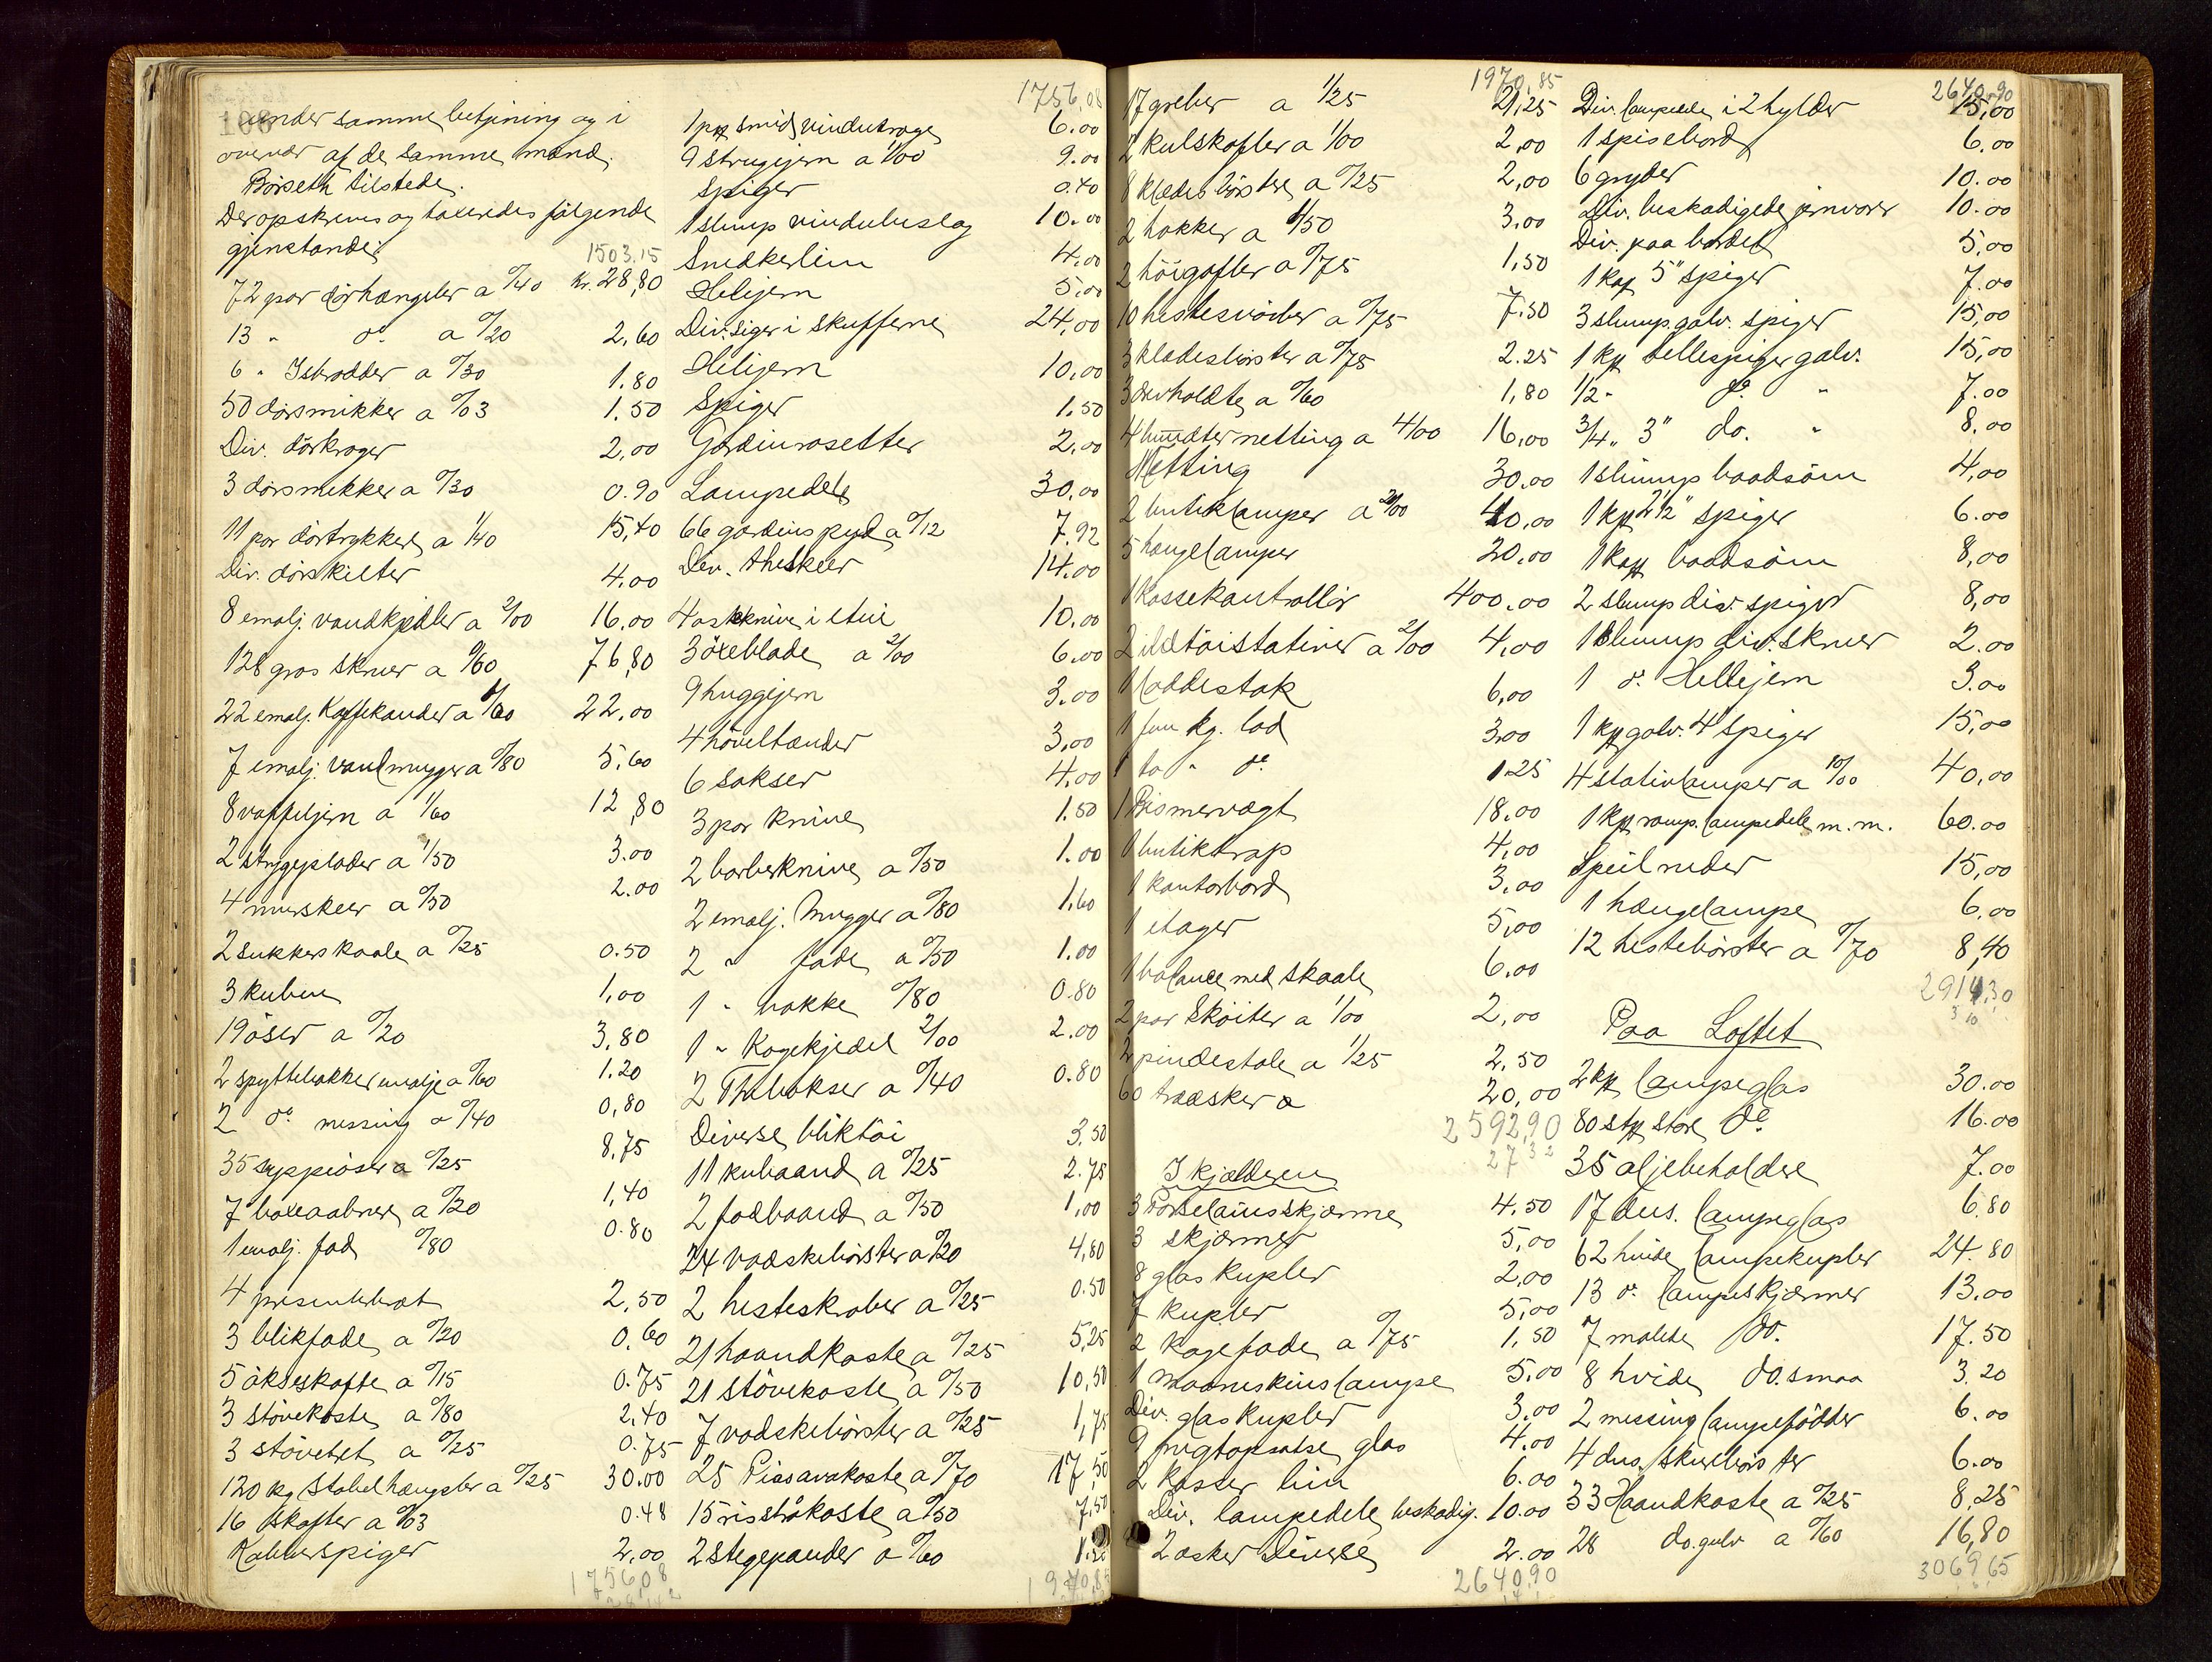 188
under samme betjening og i
overvær af de samme mænd.
Börseth tilstede.
Der opskreves og taxeredes følgende
gjenstande: 1503.15
72 par dørhængsler a 0/40 kr. 28,80
13 " do. a 0/20 2,60
6 " Isbrodder a 0/30 1.80
50 dørsmikker a 0/03 1.50
Div. dörkroger 2,00
3 dörsmekker a 0/30 0.90
11 par dörtrykkere a 1/40 15,40
Div. dörskilter 4.00
8 emalj. vandkjedler a 2/00 16.00
128 gros skruer a 0/60 76,80
22 emalj. Kaffekander a 1/00 22.00
7 emalj. vandmugger a 0/80 5.60
8 vaffeljern a 1/60 12,80
2 strygeplader a 1/50 3.00
4 murskeer a 0/50 2.00
2 sukkerskaale a 0/25 0.50
3 kuber 1,00
19 öser a 0/20 3,80
2 spyttebakker emalje a 0/60 1.20
2 do. messing a 0/40 0,80
35 suppeöser a 0/25 8,75
7 boxeaabnere a 0/20 1,40
1 emalj. fad 0/80 0.80
4 presenterbræt 2,50
3 blikfade a 0/20 0.60
5 økseskafte a 0/15 0.75
3 stövekoste a 0/80 2,40
3 stövebret a 0/25 0.75
120 kg Stabelhængsler a 0/25 30.00
16 skafter a 0/03 0.48
Kobberspiger 2,00
175608
1756,08
1 pk smid vinduskroge 6.00
9 strygejern a 1/00 9.00
Spiger 0.40
1 slump vindubeslag 10.00
Snedkerlim 4,00
Helljern 5,00
Div. siger i skufferne 24,00
Helljern 10,00
Spiger 1.50
Gardinrosetter 2,00
Lampedele 30,00
66 gardinspyd a 0/12 7.92
Div. theskeer 14.00
4 askknive i etui 10.00
3 öxeblade a 2/00 6.00
9 huggejern 3.00
4 høveltænder 3,00
6 sakser 4,00
3 par knive 1.50
2 barberknive a 0/50 1.00
2 emalj. mugger a 0/80 1,60
2 " fade a 0/50 1.00
1 " bakke 0/80 0.80
1 " Kogekjedel 2/00 2.00
2 Thebokser a 0/40 0.80
Diverse bliktöi 3.50
11 kubaand a 0/25 2.75
2 fodbaand a 0/50 1,00
24 vadskebörster a 0/20 4,80
2 hesteskraber a 0/25 0.50
21 haandkoste a 0/25 5,25
21 stövekoste a 0/50 10,50
7 vadskebörster a 0/25 1,75
25 Piasavakoste a 0/70 17,50
15 risstråkoste a 0/50 7,50
2 stegepander a 0/60 1.20
1970,85
1970,85
17 greber a 1/25 21,25
2 kulskafler a 1/00 2,00
8 klædesbörster a 0/25 2,00
2 hakker a 1/50 3.00
2 höigafler a 0/75 1,50
10 hestesvöber a 0/75 7.50
3 klædesbörster a 0/75 2.25
3 dørholdte a 0/60 1,80
4 bundter netting a 4/00 16,00
Netting 30.00
2 butiklamper a 20/00 40,00
5 hængelamper 20.00
1 Kassekontrollör 400.00
2 ildtöistativer a 2/00 4,00
1 loddestok 6,00
1 fem kg. lod 3,00
1 to " do. 1.25
1 Bismervægt 18.00
1 butiktrap 4,00
1 kontorbord 3,00
1 etager 5,00
1 balance med skaale 6.00
2 par Sköiter a 1/00 2,00
2 pindestole a 1/25 2,50
60 trææsker a 20,00
2592,90
I kjælderen
3 Porselainsskjærme 4.50
3 skjærmer 5,00
8 glas kupler 2,00
7 kupler 5,00
2 kagefade a 0/75 1,50
1 maaneskinslampe 5.00
Div. glas kupler 3.00
9 frugtopsatse glas 4.00
2 kasser lim 6.00
Div. lampedele beskadig. 10.00
2 æsker Diverse 2.00
2640,90
2640,90
Div. lampedele i 2 hylder 15,00
1 spisebord 6,00
6 gryder 10.00
Div. beskadigede jernvarer 10.00
Div. paa bordet 5,00
1 kas 5" spiger 7.00
3 slump galv. spiger 15,00
1 kp tellespiger galv. 15,00
1/2 " do. " 7.00
3/4 " 3" do. " 8,00
1 slump baadsöm 4,00
1 kp 2 1/2" spiger 6.00
1 kas baadsöm 8,00
2 slump div. spiger 8,00
1 slump div. skruer 2.00
1 do. Hellejern 3.00
1 kp galv. 4" spiger 15,00
4 stativlamper a 10/00 40,00
1 kp ramp. lampedele m.m. 60.00
Speilruder 15,00
1 hængelampe 6,00
12 hestebörster a 0/70 8,40
2914,30
Paa Loftet
2 kp lampeglas 30.00
80 stk store do. 16.00
35 oljebeholdere 7.00
17 dus. lampeglas 6.80
62 hvide lampekupler 24.80
13 do. lampeskjærmer 13.00
7 malede do. 17.50
8 hvide do. smaa 3.20
2 messing lampefödder 6.00
4 dus. skurebörster 6.00
33 Haandkoste a 0/25 8,25
28 do. gulv a 0/60 16,80
3069,65